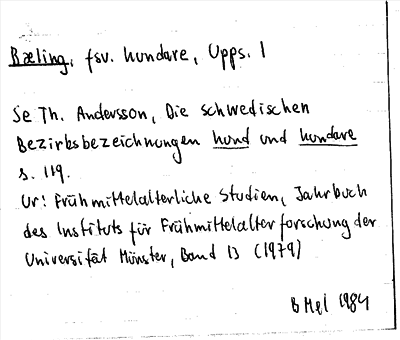 Bæling, fsv. hundare, Upps. l
Se Th. Andersson, Die schwedischen
Bezirksbezeichnungen hund und hundare
s. 119.
Ur: Frühmittelalterliche Studien, Jahrbuch
des Instituts für Frühmittelalterforschung der
Universität Münster, Band 13 (1979)
B Mel 1984